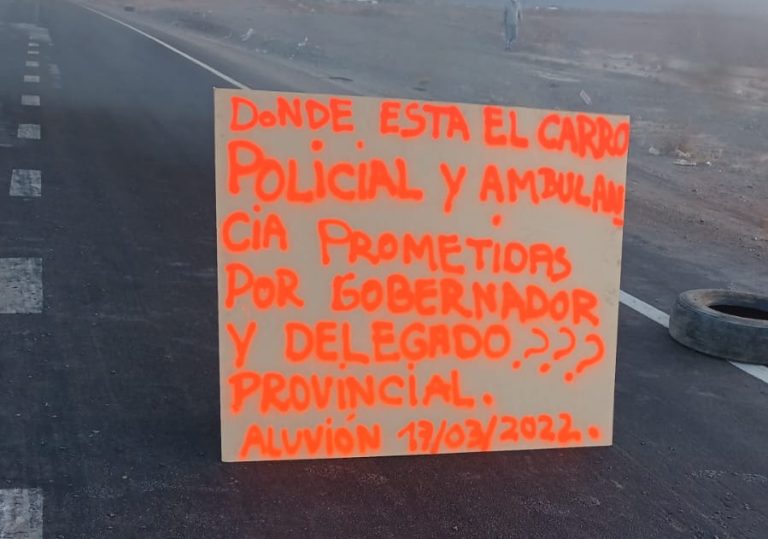 DONDE ESTA EL CARRO
POLICIAL Y AMBULAN
CIA PROMETIDAS
POR GOBERNADOR
Y DELEGADO.???
PROVINCIAL.
ALUVIÓN 17/03/2022.